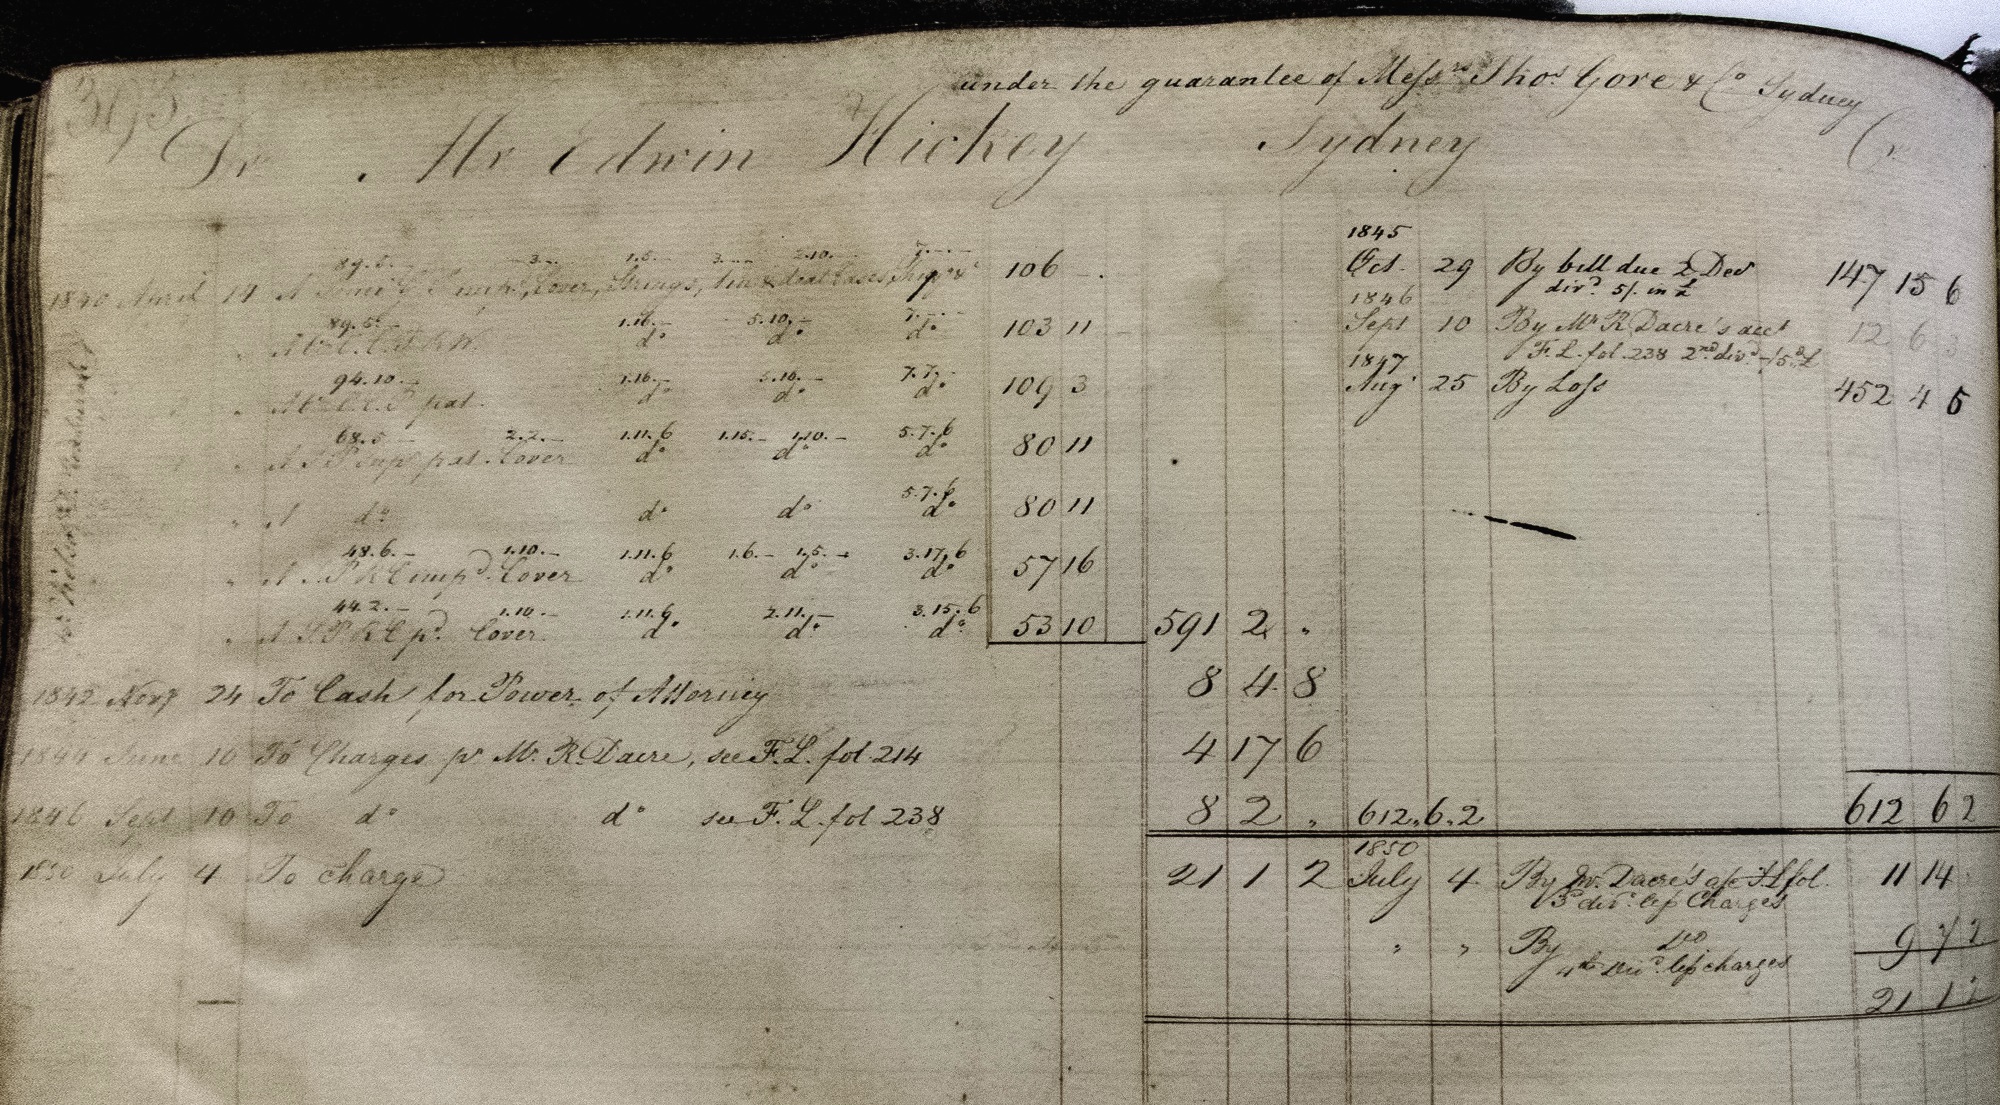 under the guarantee of Messrs Thos Gore & Co Sydney
Dr. Mr Edwin Hickey Sydney Cr
89.5.- 3.- 1.5.- 3.- 2.10.- 7.-.-
1840 April 14 A Cover, Strings, tin & deal Cases, 106 - .
89.5.- 1.16.- 5.10.- 7.-.-
" do do do 103 11 -
94.10.- 1.16.- 5.10.- 7.7.-
" " pat. do do do 109 3
68.5.- 2.2.- 1.11.6 1.15.- 1.10.- 5.7.6
" pat. Cover do do do 80 11
5.7.6
" A do do do do 80 11
48.6.- 1.10.- 1.11.6 1.6.- 1.5.- 3.17.6
" A Cover do do do 57 16
44.2.- 1.10.- 1.11.6 2.11.- 3.15.6
" A Cover do do do 53 10 591 2 "
1842 Novr 24 To Cash for Power of Attorney 8 4 8
1844 June 10 To Charges pr Mr R. Dacre, see F.L. fol. 214 4 17 6
1846 Sept 10 To do do see F.L. fol 238 8 2 " 612.6.2
1850 July 4 To charge 21 1 2
1845
Oct. 29 By bill due 2 Decr 147 15 6
divd 5/. in £
1846
Sept 10 By Mr R Dacre's acct 12 6 3
F.L. fol. 238 2nd divd -/5 £
1847
Augt 25 By Loss 452 4 5
612 6 2
1850
July 4 By Mr. Dacre's a/c FL fol. 11 14
3d divd less Charges
" " By Do 9 7 2
4th Divd less charges
21 1 2